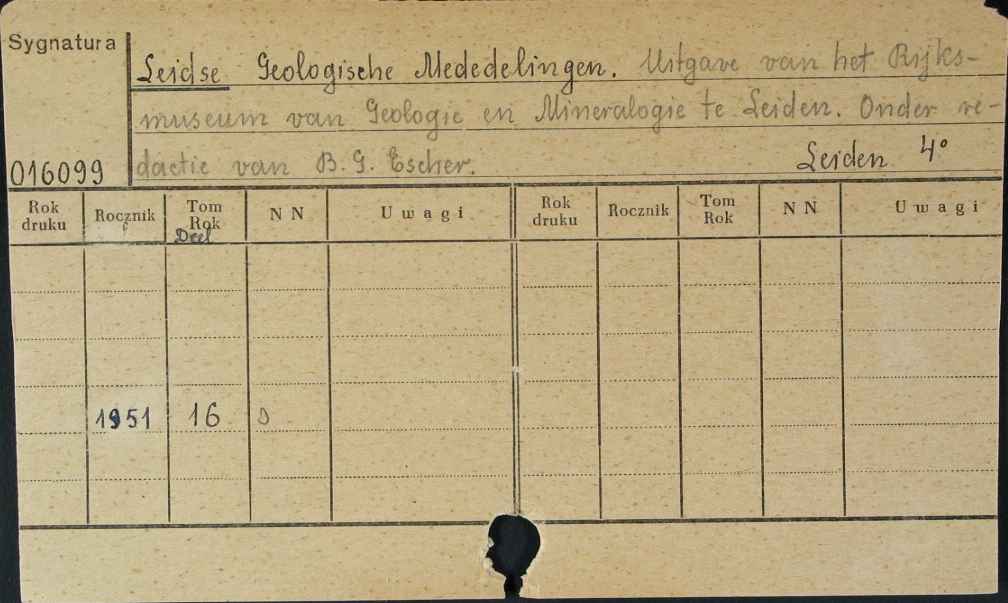 Sygnatura
Leidse Geologische Mededelingen. Uitgave van het Rijks-
museum van Geologie en Mineralogie te Leiden. Onder re-
016099 dactie van B. G. Escher. Leiden 4°
Rok druku Rocznik Tom Rok Deel N N Uwagi Rok druku Rocznik Tom Rok N N Uwagi
1951 16